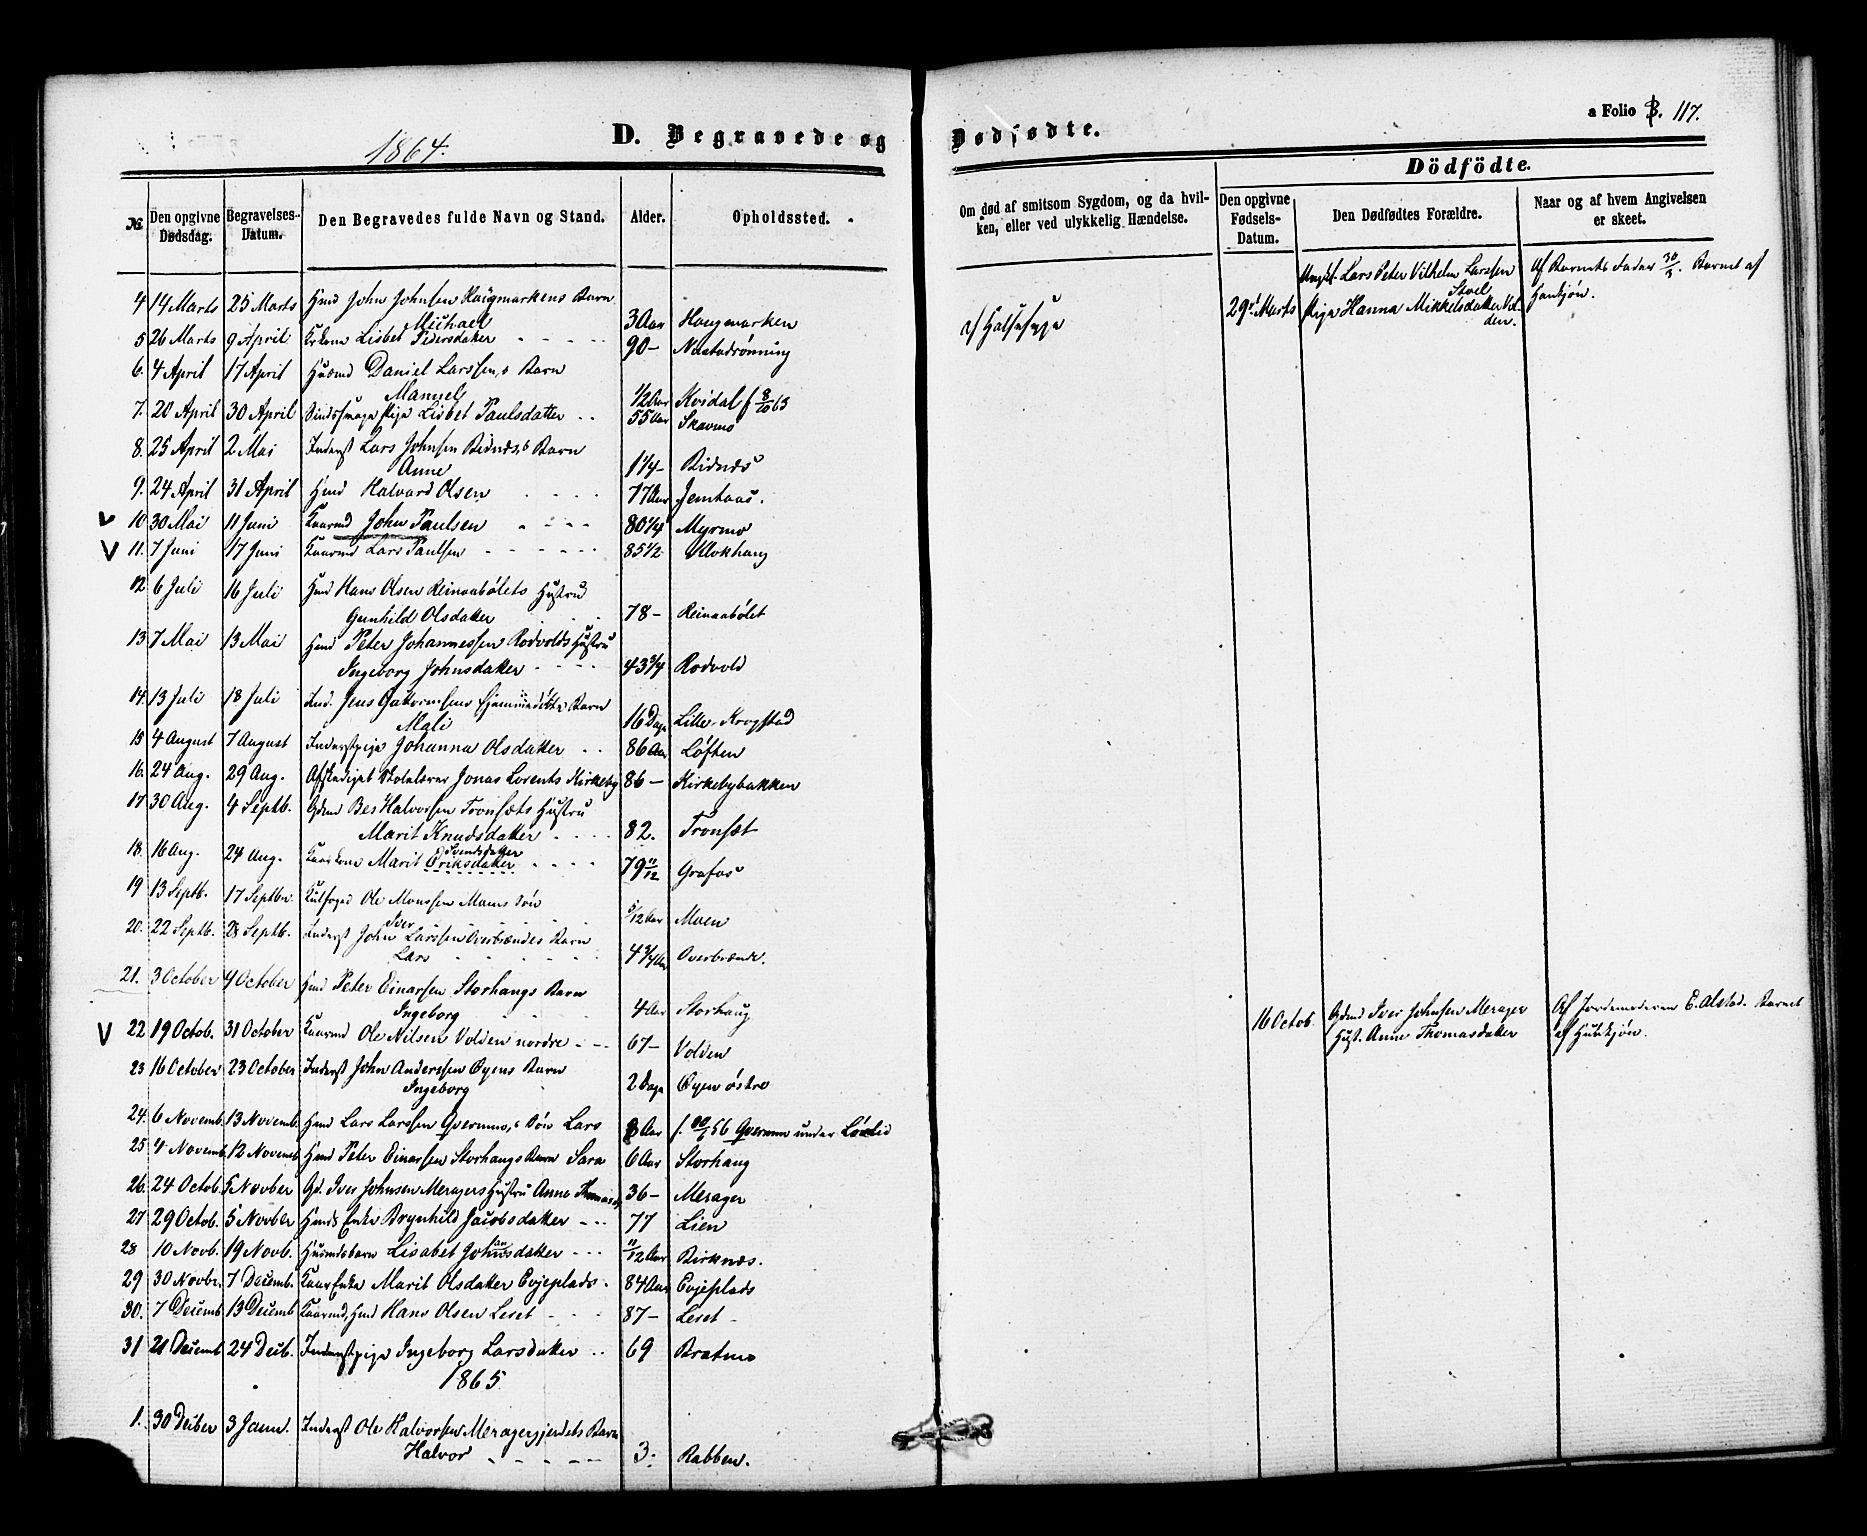 a Folio B. 117.
1864.
D. Begravede og Dødfødte.
Dödfödte.
№ Den opgivne Dødsdag. Begravelses-Datum. Den Begravedes fulde Navn og Stand. Alder. Opholdssted.
Om død af smitsom Sygdom, og da hvilken, eller ved ulykkelig Hændelse. Den opgivne Fødsels-Datum. Den Dødfødtes Forældre. Naar og af hvem Angivelsen er skeet.
4 14 Marts 25 Marts Hmd John Johnsen Haugmarkens Barn
Michael 3 Aar Haugmarken af Halssyge
5 26 Marts 9 April Lisbet Pedersdatter 90 -
6. 4 April 17 April Husmd Daniel Larssens Barn
Manuel 1/2 Aar Kvidal f 8/10 63
7. 20 April 30 April Pige Lisbet Paulsdatter 55 Aar Skavmo
8. 25 April 2 Mai Inderst Lars Johnsen Bidnæs's Barn
Anne 1 1/4 - Bidnæs
9. 24 April 31 April Hmd Halvard Olsen 77 Aar Jemtaas.
10 30 Mai 11 Juni Kaarmd John Paulsen 80 1/4 Myrmo
11. 7 Juni 17 Juni Kaarmd Lars Paulsen 85 1/2 Klokhaug
12 6 Juli 16 Juli Hmd Hans Olsen Reinaabølets Hustru
Gunhild Olsdatter 78 - Reinaabølet
13. 7 Mai 13 Mai Hmd Peter Johannessen Rodvolds Hustru
Ingeborg Johnsdatter 43 3/4 Rodvold
14. 13 Juli 18 Juli Ind. Jens Guttormsens hjemmedøbte Barn
Mali 16 Dage Lille-Krogstad
15 4 August 7 August Inderstpige Johanna Olsdatter 86 Aar Løften
16. 24 Aug. 29 Aug. Afskediget Skolelærer Jonas Lorents Kirkeby 86 - Kirkebybakken
17 30 Aug. 4 Septb. Gdmd Bes Halvorsen Tronsæts Hustru
Marit Knudsdatter 82. Tronsæt
18. 16 Aug. 24 Aug. Kaarkone Marit Eriksdatter Svendsdatter 79 11/12 Grafos
19 13 Septb. 17 Septbr. Ole Monssen Moens Søn
Iver 5/12 Aar Moen
20. 22 Septb. 28 Septb. Inderst John Larssen Overbrændes Barn
Lars 4 3/4 Aar Overbrænde.
21. 3 October 9 October Hmd Peter Einarsen Storhaugs Barn
Ingeborg 4 Aar Storhaug
22 19 Octob. 31 October Kaarmd Ole Nilsen Volden nordre 67 - Volden
23 16 October 23 October Inderst John Anderssen Øyens Barn
Ingeborg 2 Dage Øyen østre
24. 6 Novemb. 13 Novemb. Hmd Lars Larssen Qvernmo's Søn Lars 8 Aar 56 Qvernmo under Løvlid
25 4 Novemb 12 Novemb. Hmd Peter Einarsen Storhaugs Barn Sara 6 Aar Storhaug
26. 24 Octob. 5 Novber Gd. Iver Johnsen Meragers Hustru Anne Thomasd. 36 - Merager
27 29 Octob. 5 Novber Hmds Enke Brynhild Jacobsdatter 77 Lien
28 10 Novb. 19 Novb. Husmdsbarn Lisabet Johnsdatter 11/12 Aar Birknæs.
29 30 Novbr. 7 Decemb. Kaar Enke Marit Olsdatter Evjeplads. 84 Aar Evjeplads
30. 7 Decemb 13 Decemb Kaarmd, Hmd Hans Olsen Leret 87 - Leret
31 21 Decemb 24 Decb. Inderstpige Ingeborg Larsdatter 69 Bratmo
1865
1. 30 Decber 3 Janu. Inderst Ole Halvorsen Meragergjerdets Barn
Halvor 3. Rabben.
29de Marts Ungkl. Lars Peter Vilhelm Larssen
Pige Hanna Mikkelsdatter Volden.
Af Barnets Fader 30/3. Barnet af
Hankjøn.
16 Octob. Gdmd Iver Johnsen Merager
Hust. Anne Thomasdatter
Af Jordemoderen E. Alstad. Barnet
af Hunkjøn.